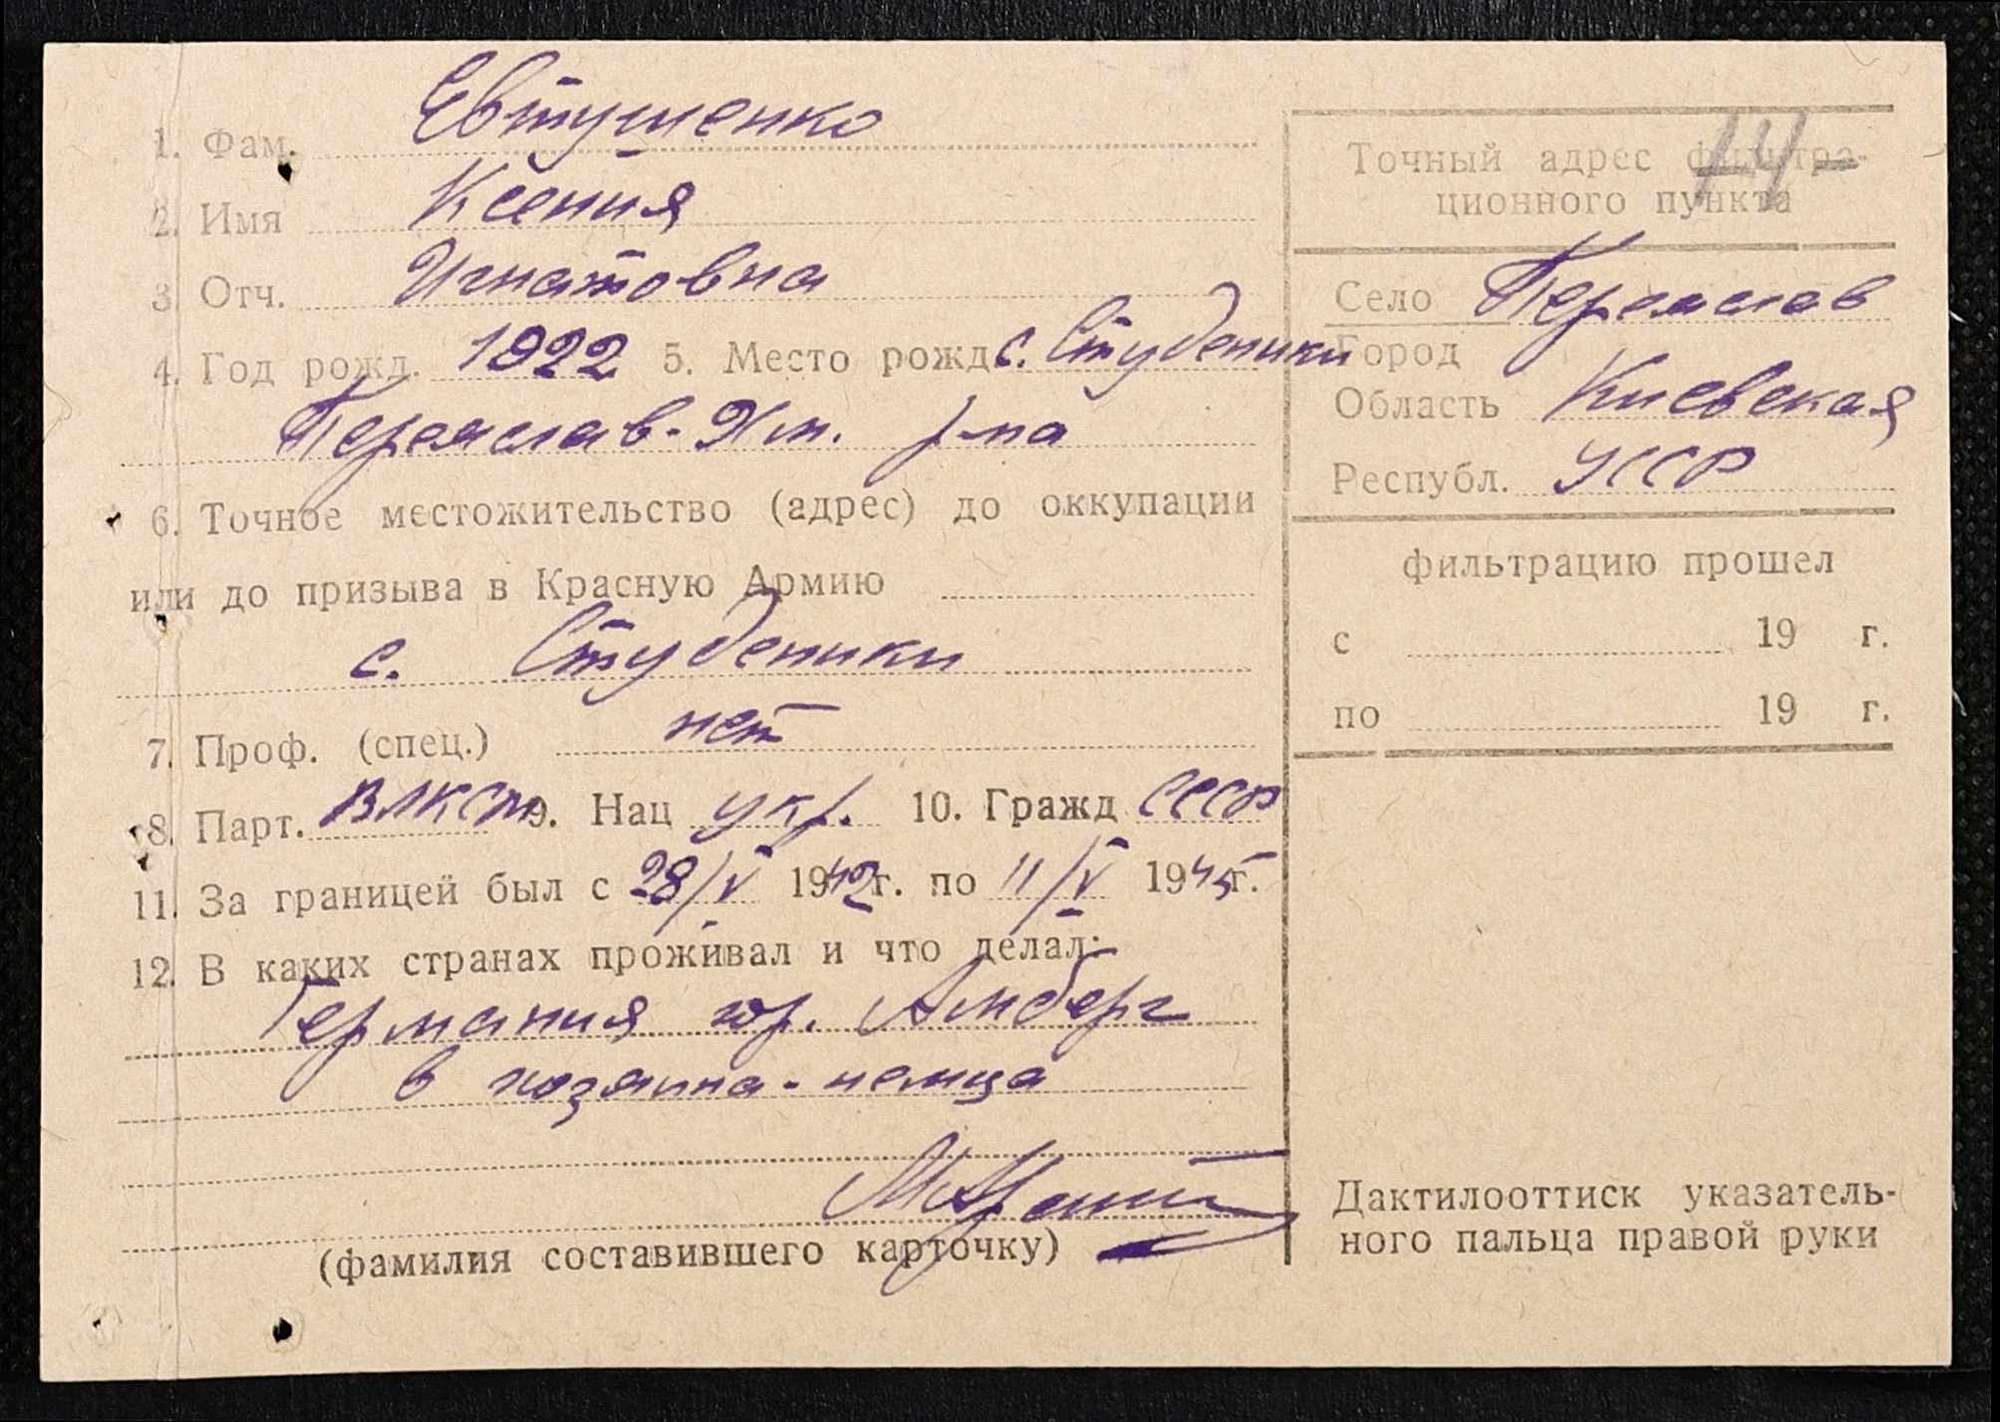 1. Фам. Евтушенко
2. Имя Ксения
3. Отч. Игнатовна
4. Год рожд. 1922 5. Место рожд. с. Студеники
Переяслав-Хм. р-на
6. Точное местожительство (адрес) до оккупации
или до призыва в Красную Армию
с. Студеники
7. Проф. (спец.) нет
8. Парт. ВЛКСМ 9. Нац укр. 10. Гражд СССР
11. За границей был с 28/V 1942г. по 11/V 1945г.
12. В каких странах проживал и что делал:
Германия гор. Амберг
в хозяина-немца
(фамилия составившего карточку)
14
Точный адрес фильтра-
ционного пункта
Село Переяслав
Город
Область Киевская
Республ. УССР
фильтрацию прошел
с 19 г.
по 19 г.
Дактилооттиск указатель-
ного пальца правой руки